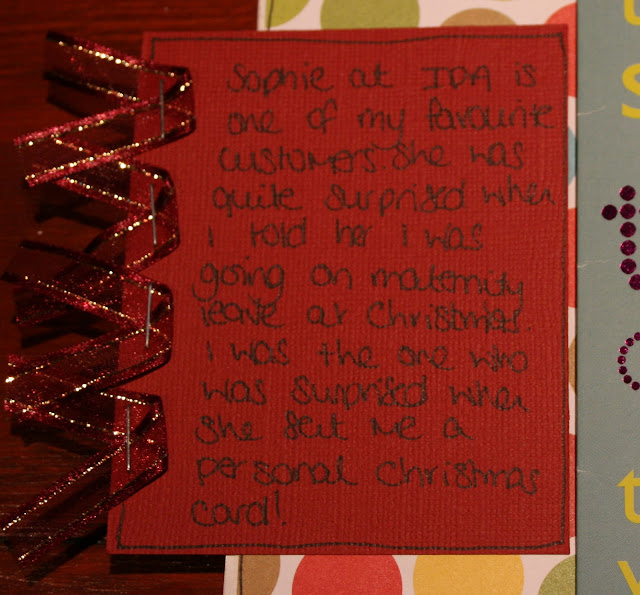 Sophie at IDA is
one of my favourite
customers. She was
quite surprised when
I told her I was
going on maternity
leave at Christmas.
I was the one who
was surprised when
she sent me a
personal Christmas
card!